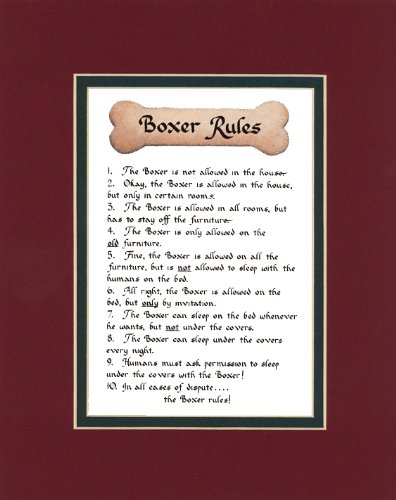 Boxer Rules
1. The Boxer is not allowed in the house.
2. Okay, the Boxer is allowed in the house,
but only in certain rooms.
3. The Boxer is allowed in all rooms, but
has to stay off the furniture.
4. The Boxer is only allowed on the
old furniture.
5. Fine, the Boxer is allowed on all the
furniture, but is not allowed to sleep with the
humans on the bed.
6. All right, the Boxer is allowed on the
bed, but only by invitation.
7. The Boxer can sleep on the bed whenever
he wants, but not under the covers.
8. The Boxer can sleep under the covers
every night.
9. Humans must ask permission to sleep
under the covers with the Boxer!
10. In all cases of dispute....
the Boxer rules!